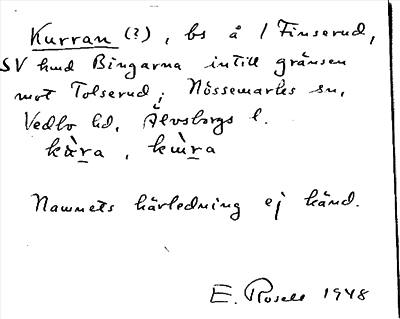 Kurran (?), bs å 1 Finserud,
SV hmd Bingarna intill gränsen
mot Tolserud; Nössemarks sn,
Vedbo hd, Älvsborgs l.
kɷ̀ra, kɯ̀ra
Namnets härledning ej känd.
E. Rosell 1948